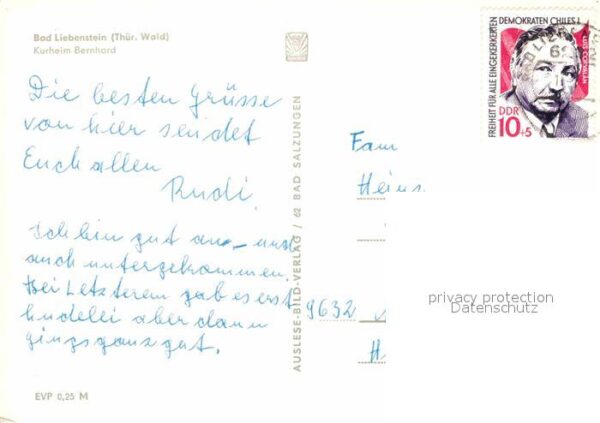 Bad Liebenstein (Thür. Wald)
Kurheim Bernhard
Die besten Grüsse
von hier sendet
Euch allen
Rudi.
Ich bin gut an- und
auch untergekommen.
Bei Letzterem gab es erst
hudelei aber dann
gings ganz gut.
EVP 0,25 M
AUSLESE-BILD-VERLAG / 62 BAD SALZUNGEN
FREIHEIT FÜR ALLE EINGEKERKERTEN
DEMOKRATEN CHILES!
LUIS CORVALAN
DDR
10+5
Fam
Heins
9632
H
privacy protection
Datenschutz